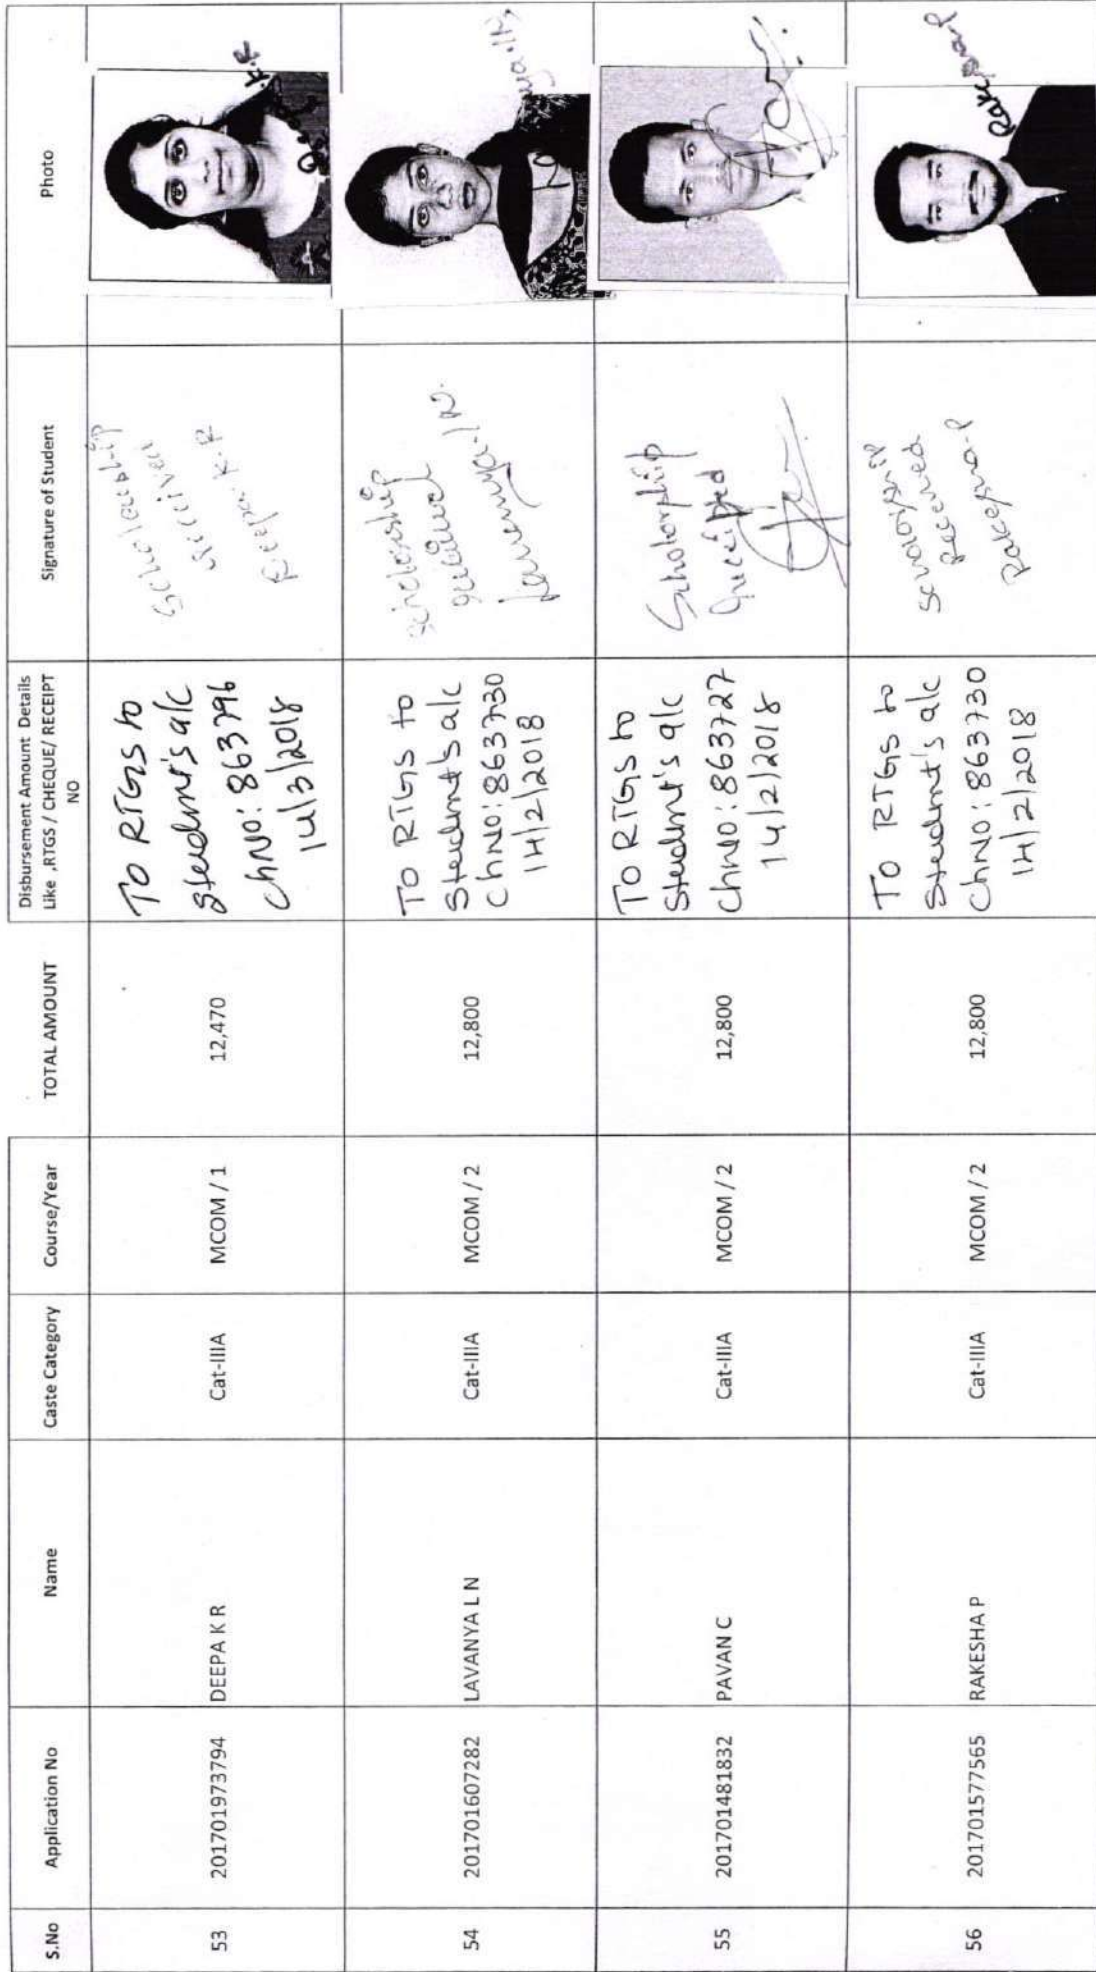 S.No Application No Name Caste Category Course/Year TOTAL AMOUNT Disbursement Amount Details Like ,RTGS / CHEQUE/ RECEIPT NO Signature of Student Photo
53 201701973794 DEEPA K R Cat-IIIA MCOM / 1 12,470
TO RTGS to
Student's a/c
ChNO: 863796
14/3/2018
Scholarship
received
Deepa K.R
54 201701607282 LAVANYA L N Cat-IIIA MCOM / 2 12,800
TO RTGS to
Student's a/c
ChNO: 863730
14/2/2018
scholarship
received
Lavanya.L.N.
55 201701481832 PAVAN C Cat-IIIA MCOM / 2 12,800
TO RTGS to
Student's a/c
ChNO: 863727
14/2/2018
Scholarship
received
56 201701577565 RAKESHA P Cat-IIIA MCOM / 2 12,800
TO RTGS to
Student's a/c
ChNO: 863730
14/2/2018
scholarship
Received
Rakesha.P
Rakesha.P